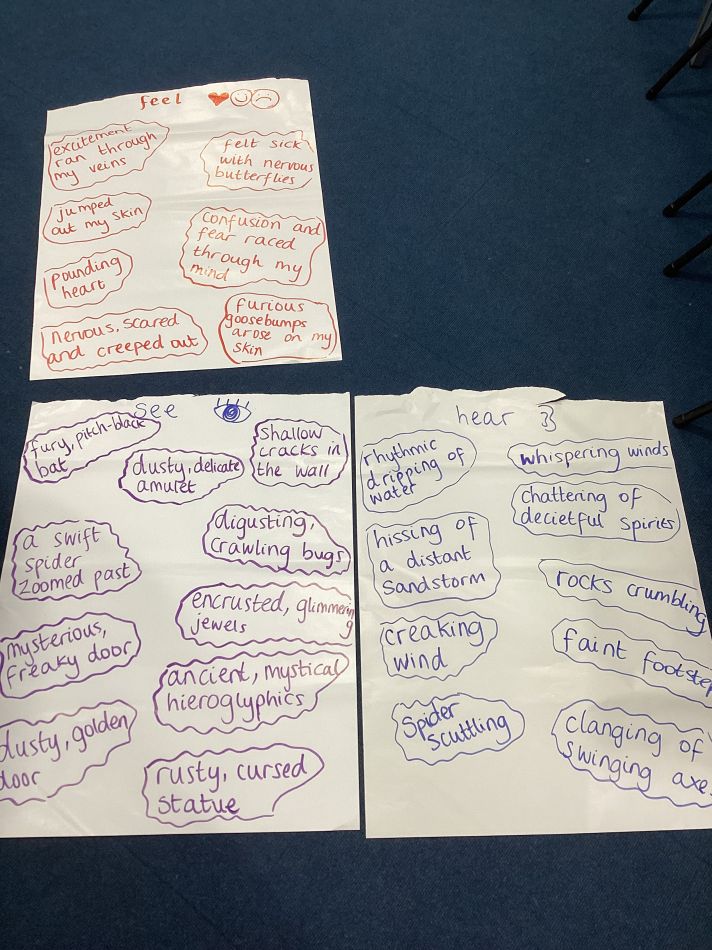 feel
excitement
ran through
my veins
felt sick
with nervous
butterflies
jumped
out my skin
confusion and
fear raced
through my
mind
pounding
heart
furious
goosebumps
arose on my
skin
nervous, scared
and creeped out
see
fury, pitch-black
bat
dusty, delicate
amulet
shallow
cracks in
the wall
a swift
spider
zoomed past
digusting,
crawling bugs
encrusted, glimmering
jewels
mysterious,
freaky door
ancient, mystical
hieroglyphics
dusty, golden
door
rusty, cursed
statue
hear
rhythmic
dripping of
water
whispering winds
chattering of
decietful spirits
hissing of
a distant
sandstorm
rocks crumbling
creaking
wind
faint footstep
spider
scuttling
clanging of
swinging axe